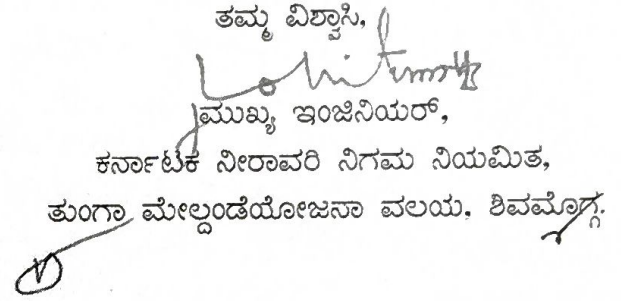 ತಮ್ಮ ವಿಶ್ವಾಸಿ,
ಮುಖ್ಯ ಇಂಜಿನಿಯರ್,
ಕರ್ನಾಟಕ ನೀರಾವರಿ ನಿಗಮ ನಿಯಮಿತ,
ತುಂಗಾ ಮೇಲ್ದಂಡೆಯೋಜನಾ ವಲಯ, ಶಿವಮೊಗ್ಗ.